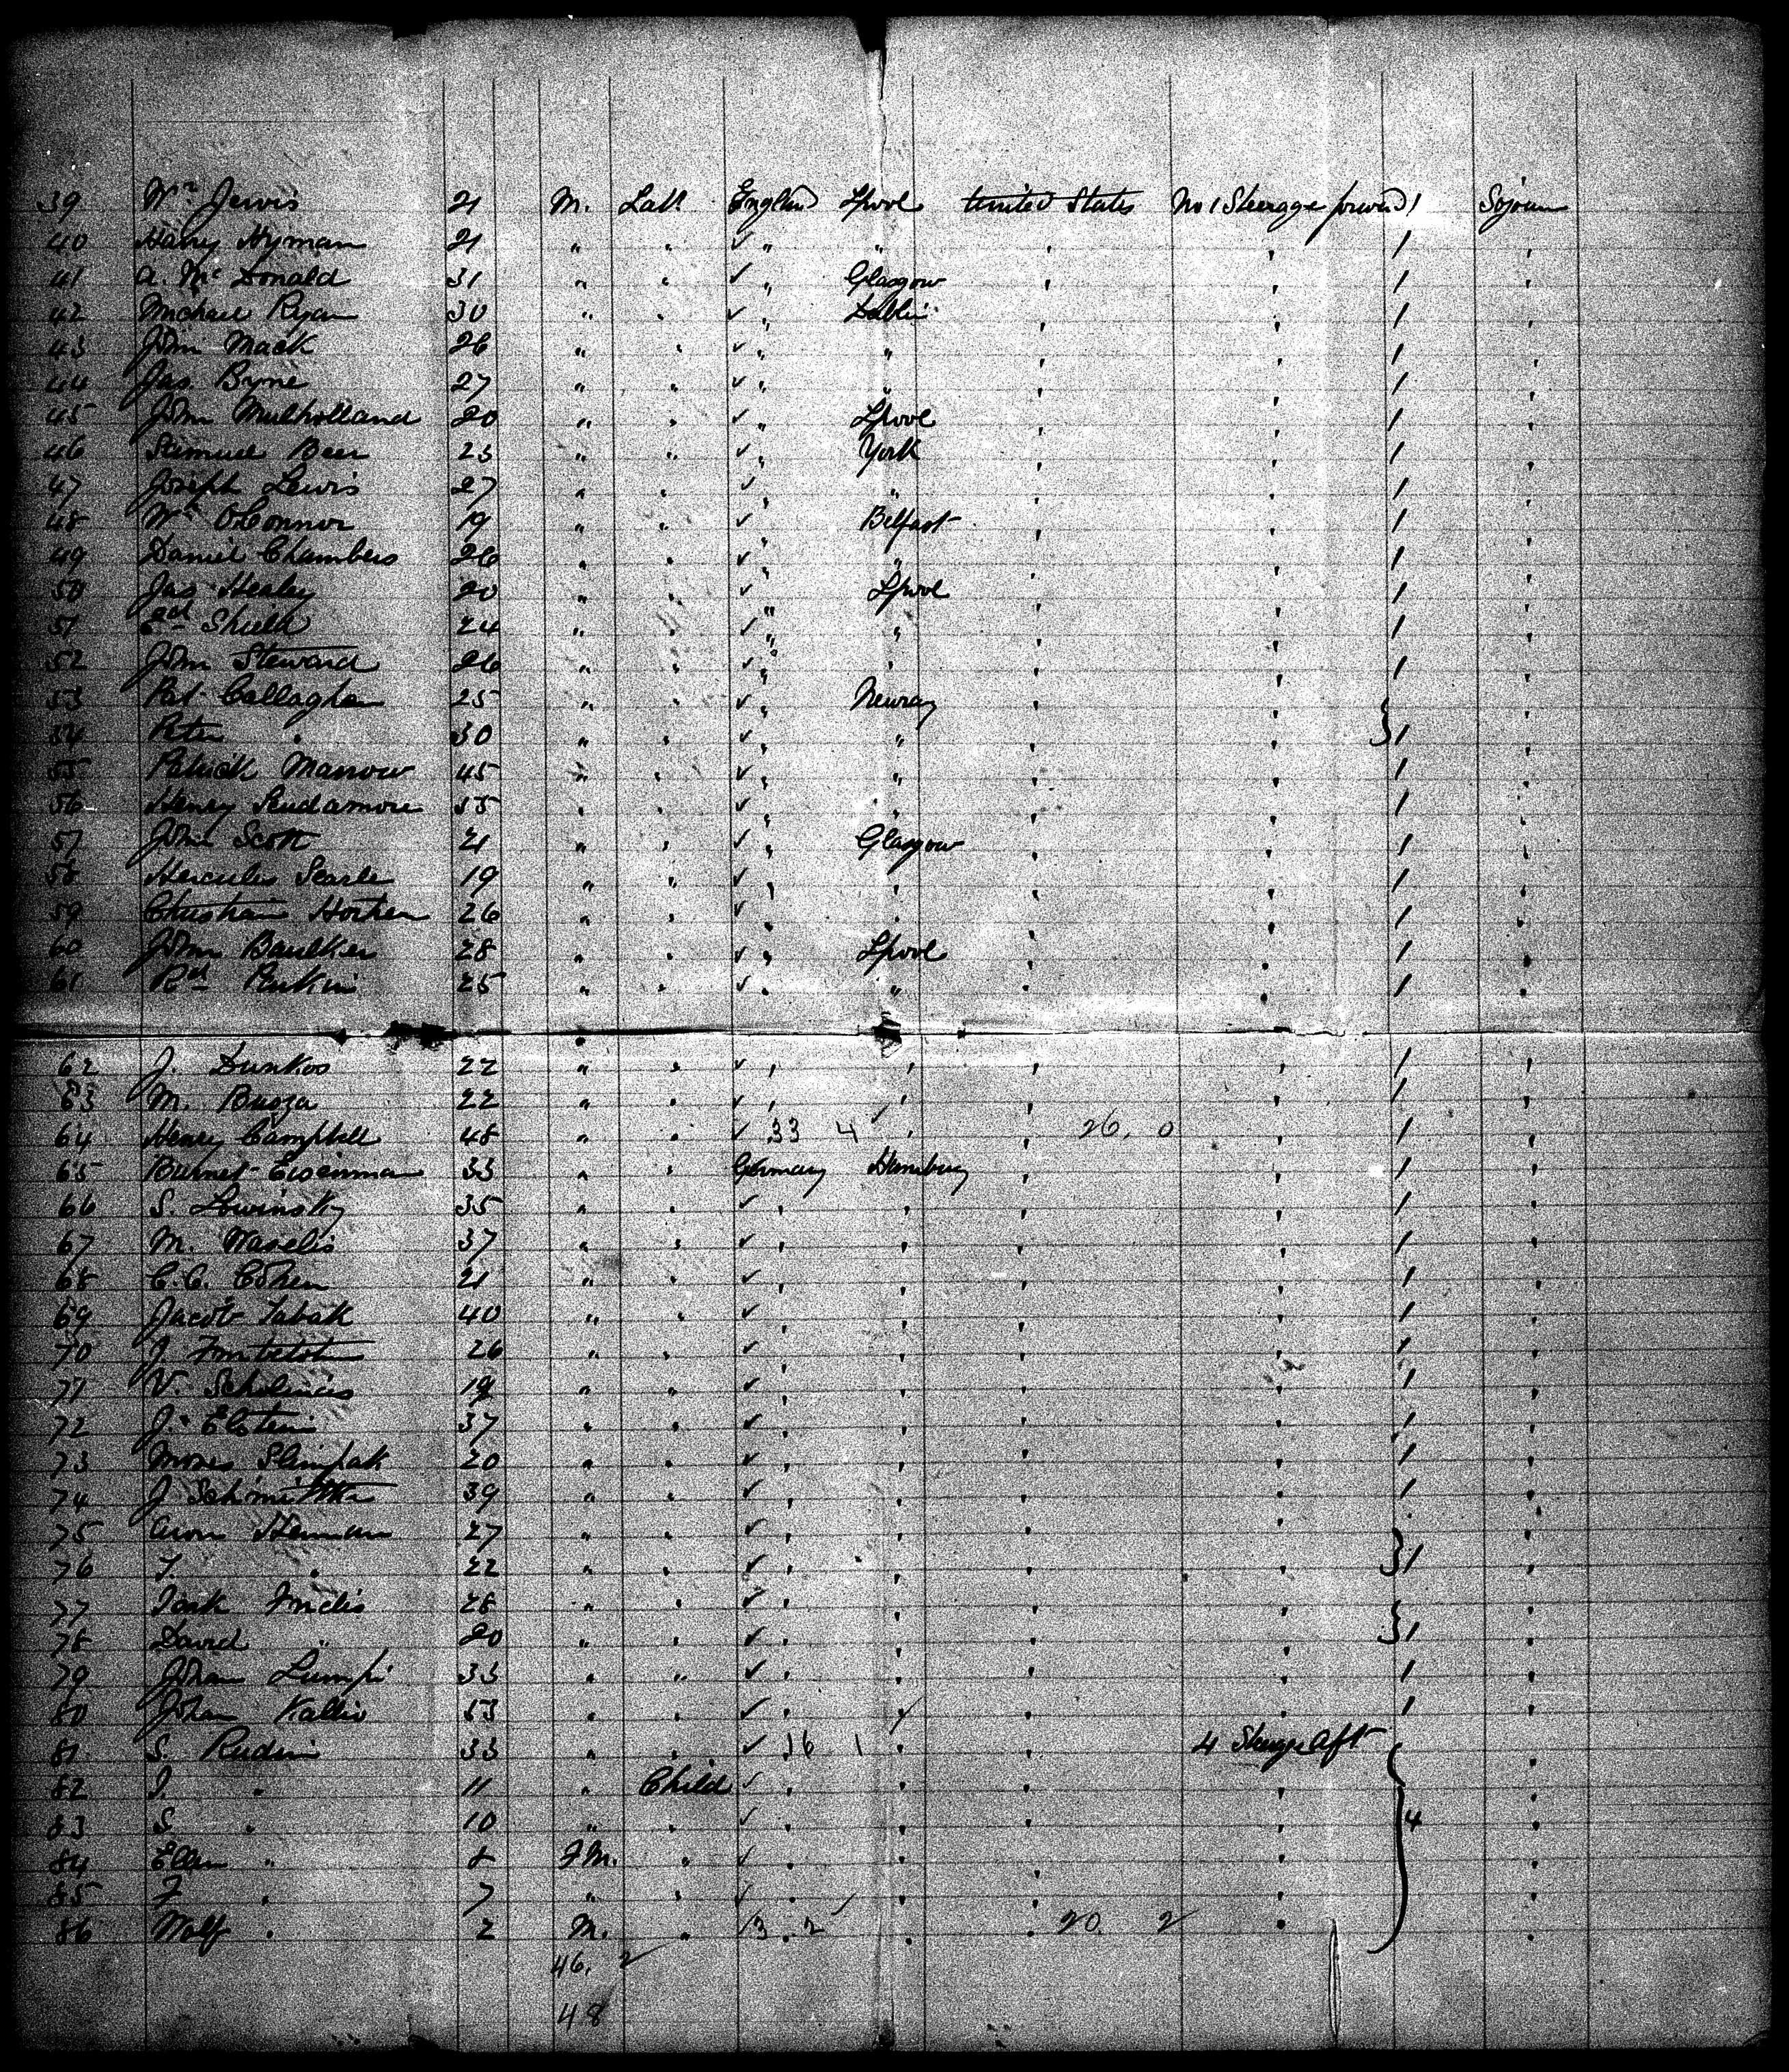 39 Wm Jervis 21 M. Lab. England Lpool United States No 1 Steerage forward 1 Sojourn
40 Harry Hyman 21 " " ✓ " " " " 1 "
41 A. Mc Donald 31 " " ✓ " Glasgow " " 1 "
42 Michael Ryan 30 " " ✓ " Dublin " " 1 "
43 John Mack 26 " " ✓ " " " " 1 "
44 Jas Byrne 27 " " ✓ " " " " 1 "
45 John Mulholland 20 " " ✓ " Lpool " " 1 "
46 Beer 23 " " ✓ " York " " 1 "
47 Joseph Lewis 27 " " ✓ " " " " 1 "
48 Wm O'Connor 19 " " ✓ " Belfast " " 1 "
49 Daniel Chambers 26 " " ✓ " " " " 1 "
50 Jas Healey 20 " " ✓ " Lpool " " 1 "
51 Ed Shield 24 " " ✓ " " " " 1 "
52 John Steward 26 " " ✓ " " " " 1 "
53 Pat Callaghan 25 " " ✓ " Newray " " "
54 Peter " 30 " " ✓ " " " " } 1 "
55 Patrick Marrow 45 " " ✓ " " " " 1 "
56 Henry Scudamore 35 " " ✓ " " " " 1 "
57 John Scott 21 " " ✓ " Glasgow " " 1 "
58 Hercules Searle 19 " " ✓ " " " " 1 "
59 Christian 26 " " ✓ " " " " 1 "
60 John Baulker 28 " " ✓ " Lpool " " 1 "
61 Rd 25 " " ✓ " " " " 1 "
62 J. Dunkos 22 " " ✓ " " " " 1 "
63 M. Buoza 22 " " ✓ " " " " 1 "
64 Henry Campbell 48 " " ✓ 33 4 " " 26. 0 " 1 "
65 Burnet Eiseinman 33 " " Germany Hamburg " " 1 "
66 S. Lowinsky 35 " " ✓ " " " " 1 "
67 M. Wavelis 37 " " ✓ " " " " 1 "
68 C.C. Cohen 21 " " ✓ " " " " 1 "
69 Jacob Tabak 40 " " ✓ " " " " 1 "
70 J 26 " " ✓ " " " " 1 "
71 V. 19 " " ✓ " " " " 1 "
72 J. Elstein 37 " " ✓ " " " " 1 "
73 Moses Slimpak 20 " " ✓ " " " " 1 "
74 J 39 " " ✓ " " " " 1 "
75 Aron Herman 27 " " ✓ " " " " "
76 T. " 22 " " ✓ " " " " } 1 "
77 28 " " ✓ " " " " "
78 David " 20 " " ✓ " " " " } 1 "
79 Johan Lumpi 33 " " ✓ " " " " 1 "
80 Johan Kallio 53 " " ✓ " " " " 1 "
81 S. Rudin 33 " " ✓ 16 1 " " 4 Steerage Aft "
82 J. " 11 " Child ✓ " " " " "
83 S " 10 " " ✓ " " " " } 4 "
84 Ellen " 8 FM. " ✓ " " " " "
85 F " 7 " " ✓ " " " " "
86 Wolf " 2 M. " 13 . 2 " " 20. 2 " "
46. 2
48